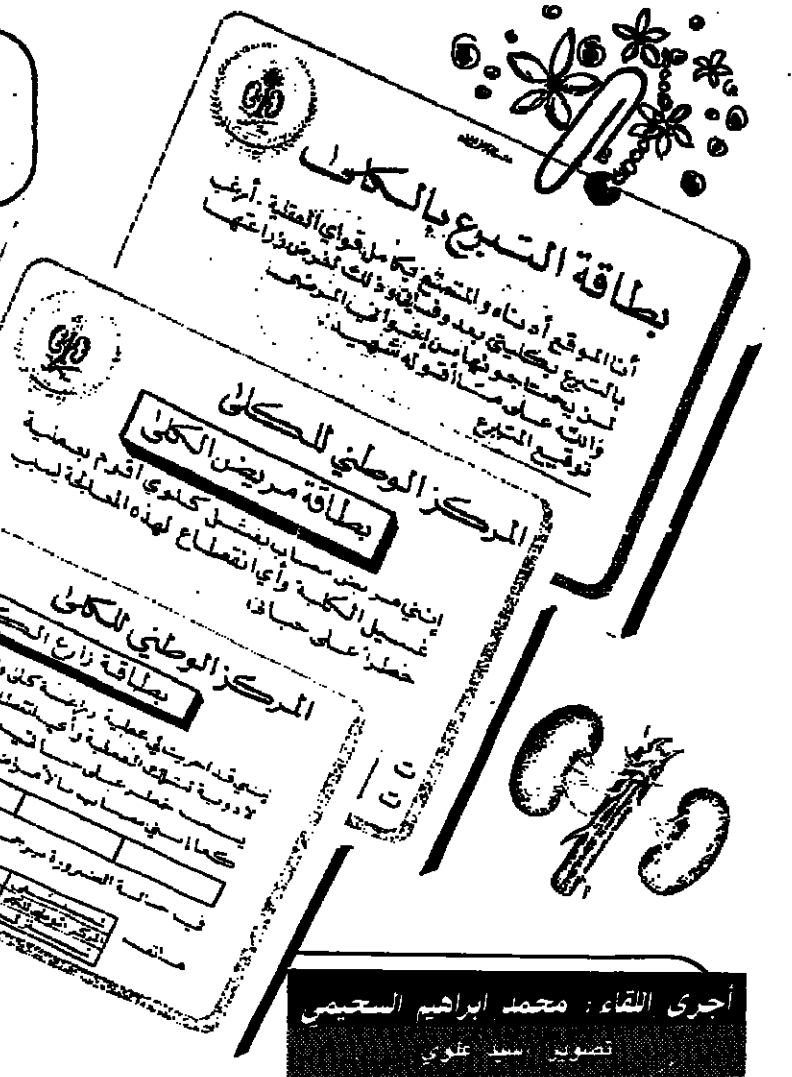 بطاقة التبرع بالكلى
أنا الموقع أدناه والمتمتع بكامل قواي العقلية. أرغب
بالتبرع بكليتي بعد وفاتي وذلك لغرض زراعتها
لمن يحتاجونها من إخواني المرضى
والله على ما أقوله شهيد
توقيع المتبرع
المركز الوطني للكلى
بطاقة مريض الكلى
إنني مريض مصاب بفشل كلوي أقوم بعملية
غسيل الكلية وأي انقطاع لهذه المعالجة يسبب
خطراً على حياتي
المركز الوطني للكلى
بطاقة زارع
قد أجريت لي عملية زراعة كلى
لأدوية وأي
يسبب خطر على حياتي
كما إنني مصاب بالأمراض
في حالة الضرورة يرجى
هاتف
أجرى اللقاء : محمد ابراهيم السحيمي
تصوير سيد علوي